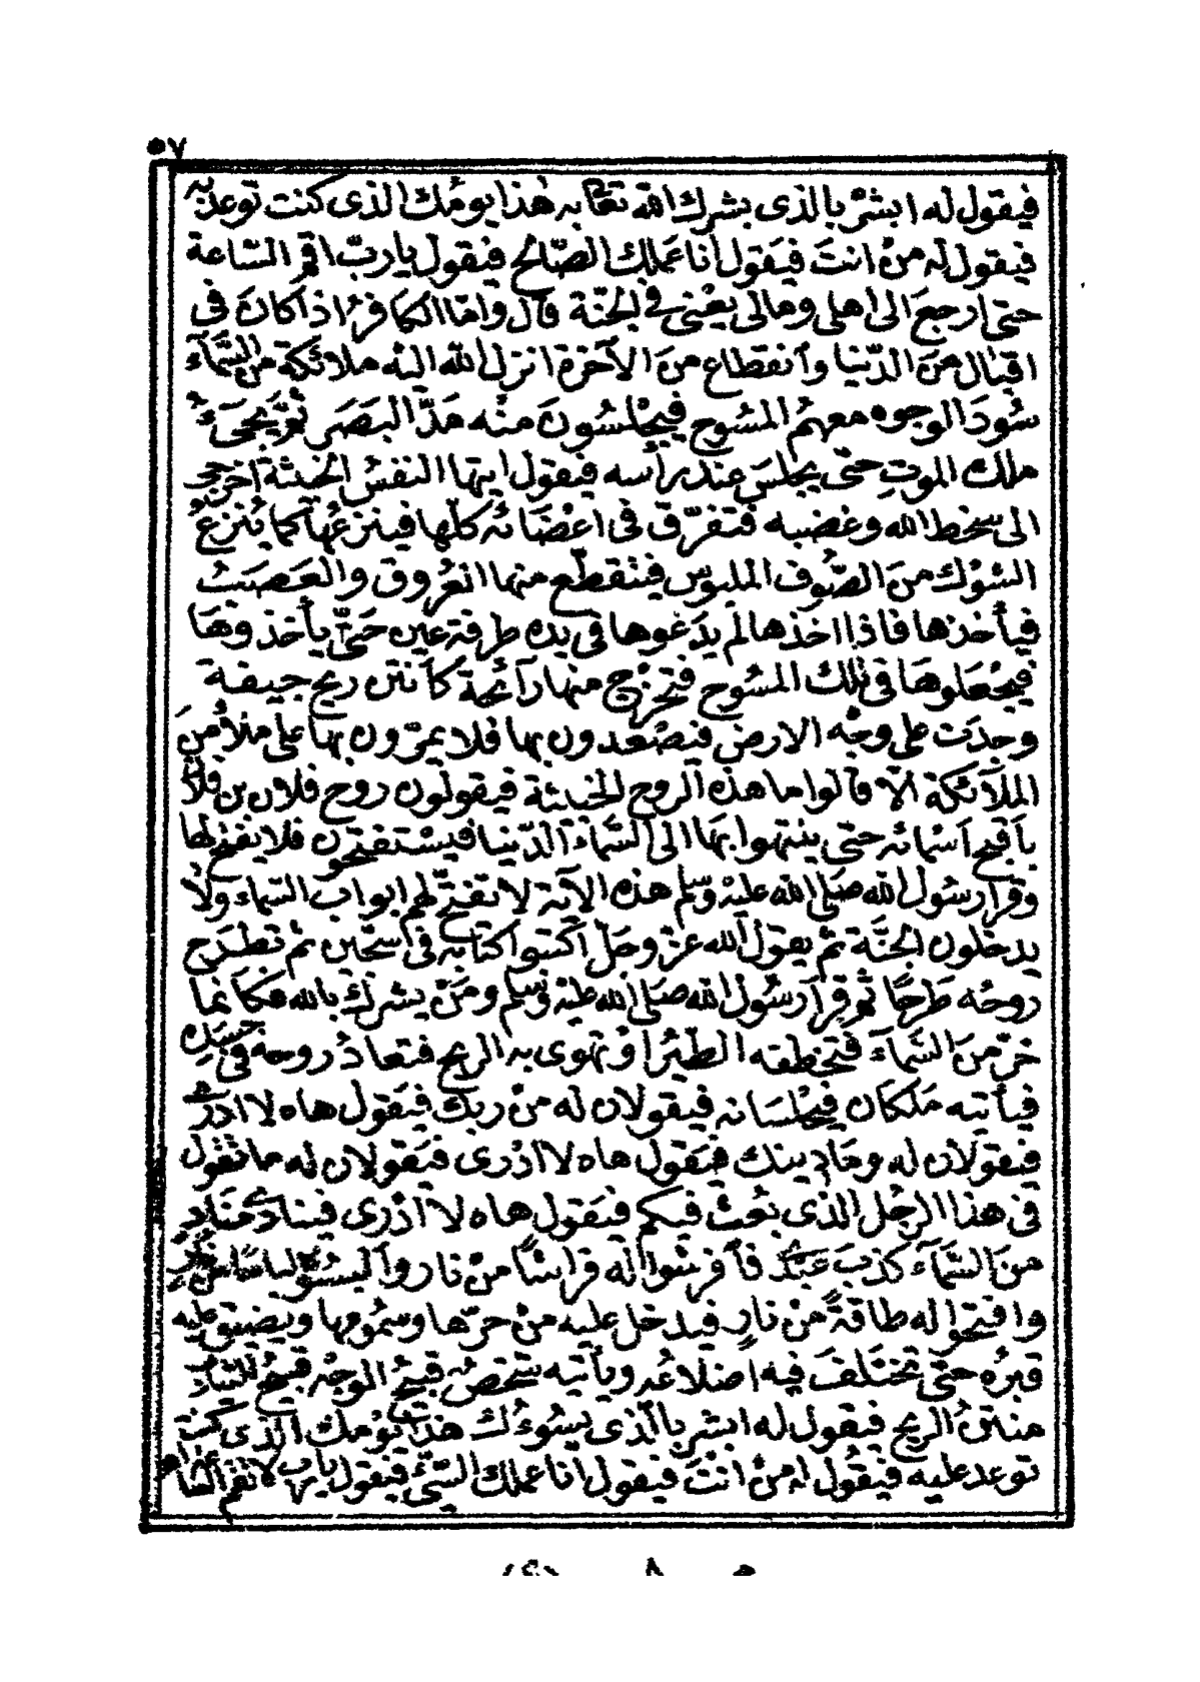 ٥٧
فيقول له ابشر بالذى بشرك الله تعا به هذا يومك الذى كنت توعد به
فيقول له من انت فيقول انا عملك الصالح فيقول يا رب اقم الساعة
حتى ارجع الى اهلى ومالى يعنى فى الجنة قال واما الكافر اذا كان فى
اقبال من الدنيا وانقطاع من الآخرة انزل الله اليه ملائكة من السماء
سود الوجوه معهم المسوح فيجلسون منه مد البصر ثم يجىء
ملك الموت حتى يجلس عند رأسه فيقول ايتها النفس الخبيثة اخرجى
الى سخط الله وغضبه فتفرق فى اعضائه كلها فينزعها كما ينزع
الشوك من الصوف المبلوس فتنقطع منها العروق والعصب
فيأخذها فاذا اخذها لم يدعوها فى يده طرفة عين حتى يأخذوها
فيجعلوها فى ذلك المسوح فتخرج منها رائحة كانتن ريح جيفة
وجدت على وجه الارض فيصعدون بها فلا يمرون بها على ملأ من
الملائكة الا قالوا ما هذه الروح الخبيثة فيقولون روح فلان بن فلان
بأقبح اسمائه حتى ينتهوا بها الى السماء الدنيا فيستفتحون فلا يفتح لها
وقرا رسول الله صلى الله عليه وسلم هذه الآية لا تفتح لهم ابواب السماء ولا
يدخلون الجنة ثم يقول الله عز وجل اكتبوا كتابه فى سجين ثم تطرح
روحه طرحا ثم قرا رسول الله صلى الله عليه وسلم ومن يشرك بالله فكانما
خر من السماء فتخطفه الطير او تهوى به الريح فتعاد روحه فى جسده
فيأتيه ملكان فيجلسانه فيقولان له من ربك فيقول هاه لا ادرى
فيقولان له وما دينك فيقول هاه لا ادرى فيقولان له ما تقول
فى هذا الرجل الذى بعث فيكم فيقول هاه لا ادرى فينادى مناد
من السماء كذب عبدى فافرشوا له فراشا من نار والبسوه لباسا من نار
وافتحوا له طاقة من نار فيدخل عليه من حرها وسمومها ويضيق عليه
قبره حتى تختلف فيه اضلاعه ويأتيه شخص قبيح الوجه قبيح الثياب
منتن الريح فيقول له ابشر بالذى يسوءك هذا يومك الذى كنت
توعد عليه فيقول له من انت فيقول انا عملك السيئ فيقول يا رب لا تقم الساعة
م ٨